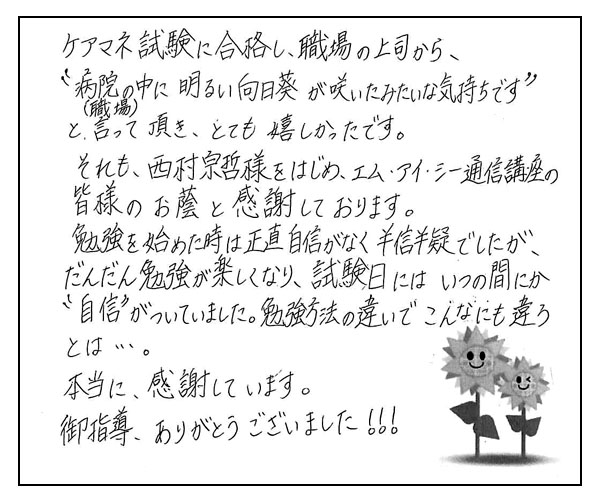 ケアマネ試験に合格し、職場の上司から、
“病院の中に 明るい向日葵 が咲いたみたいな気持ちです”
(職場)
と言って頂き、とても 嬉しかったです。
それも、西村宗哲様をはじめ、エム・アイ・シー通信講座の
皆様の お蔭 と 感謝して おります。
勉強を始めた時は正直自信がなく 半信半疑でしたが、
だんだん勉強が楽しくなり、試験日には いつの間にか
“自信”がついていました。勉強方法の違いで こんなにも違ろ
とは …。
本当に、感謝しています。
御指導、ありがとうございました!!!